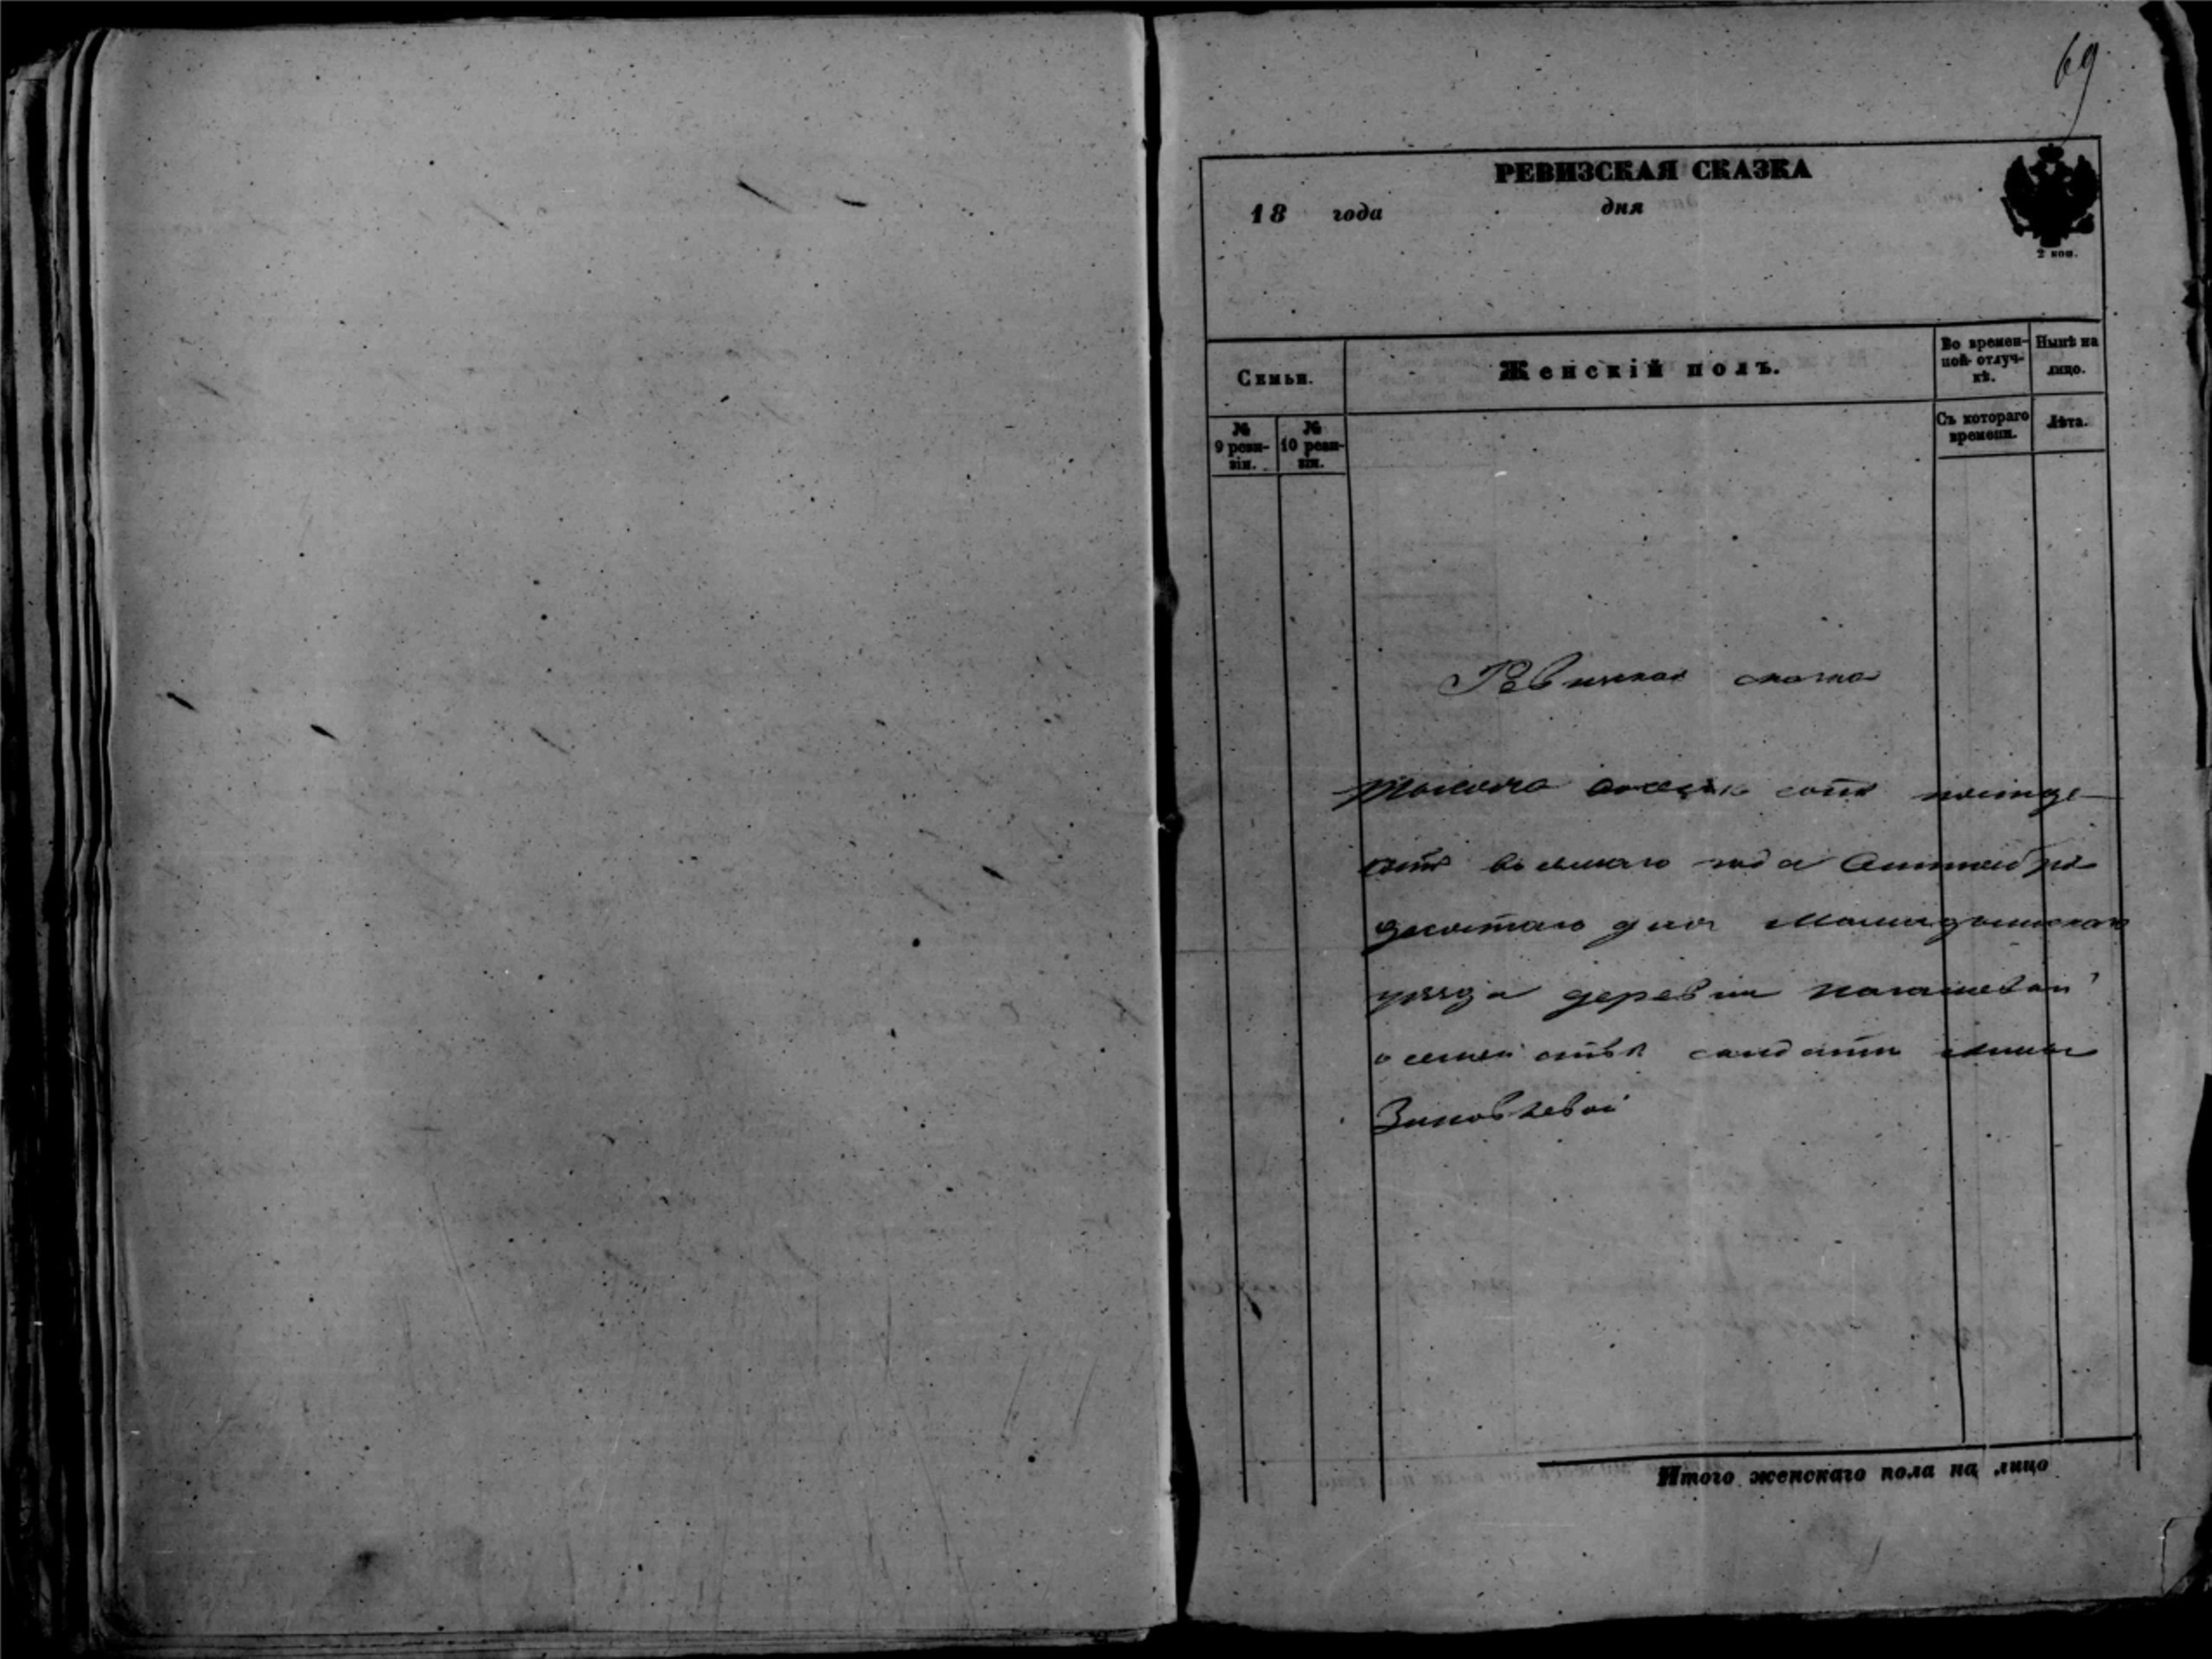 69
РЕВИЗСКАЯ СКАЗКА
18 года дня
2 коп.
Симьи. Женскій полъ. Во времен-ной отлуч-кѣ. Нынѣ на лицо.
№ 9 реви-зіи. № 10 реви-зіи. Съ котораго времени. Лѣта.
Ревизская сказка
Тысяча сотъ пятде
сятъ восьмаго года Октября
десятаго дня
уѣзда деревни
о солдатки Анны
Зиновьевой
Итого женскаго пола на лицо